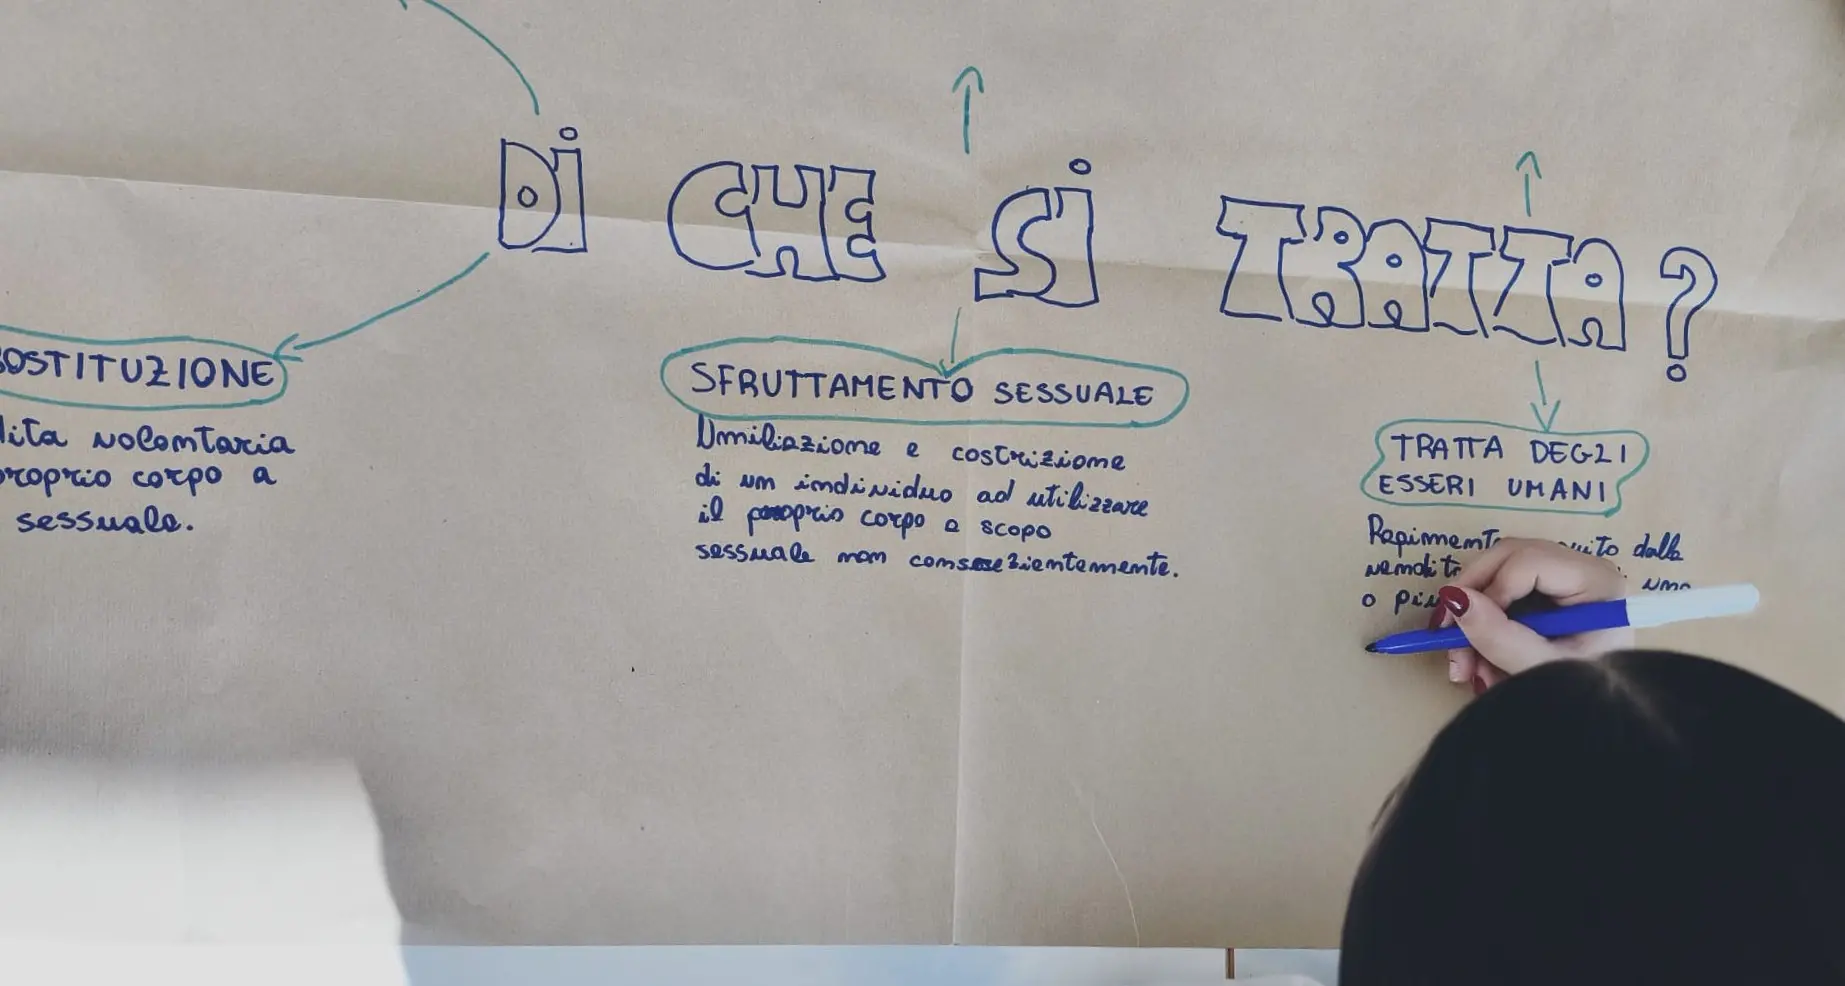 DI CHE SI TRATTA?
OSTITUZIONE
dita volontaria
proprio corpo a
sessuale.
SFRUTTAMENTO SESSUALE
Umiliazione e costrizione
di un individuo ad utilizzare
il proprio corpo a scopo
sessuale non consenzientemente.
TRATTA DEGLI
ESSERI UMANI
Rapimento dalla
o più